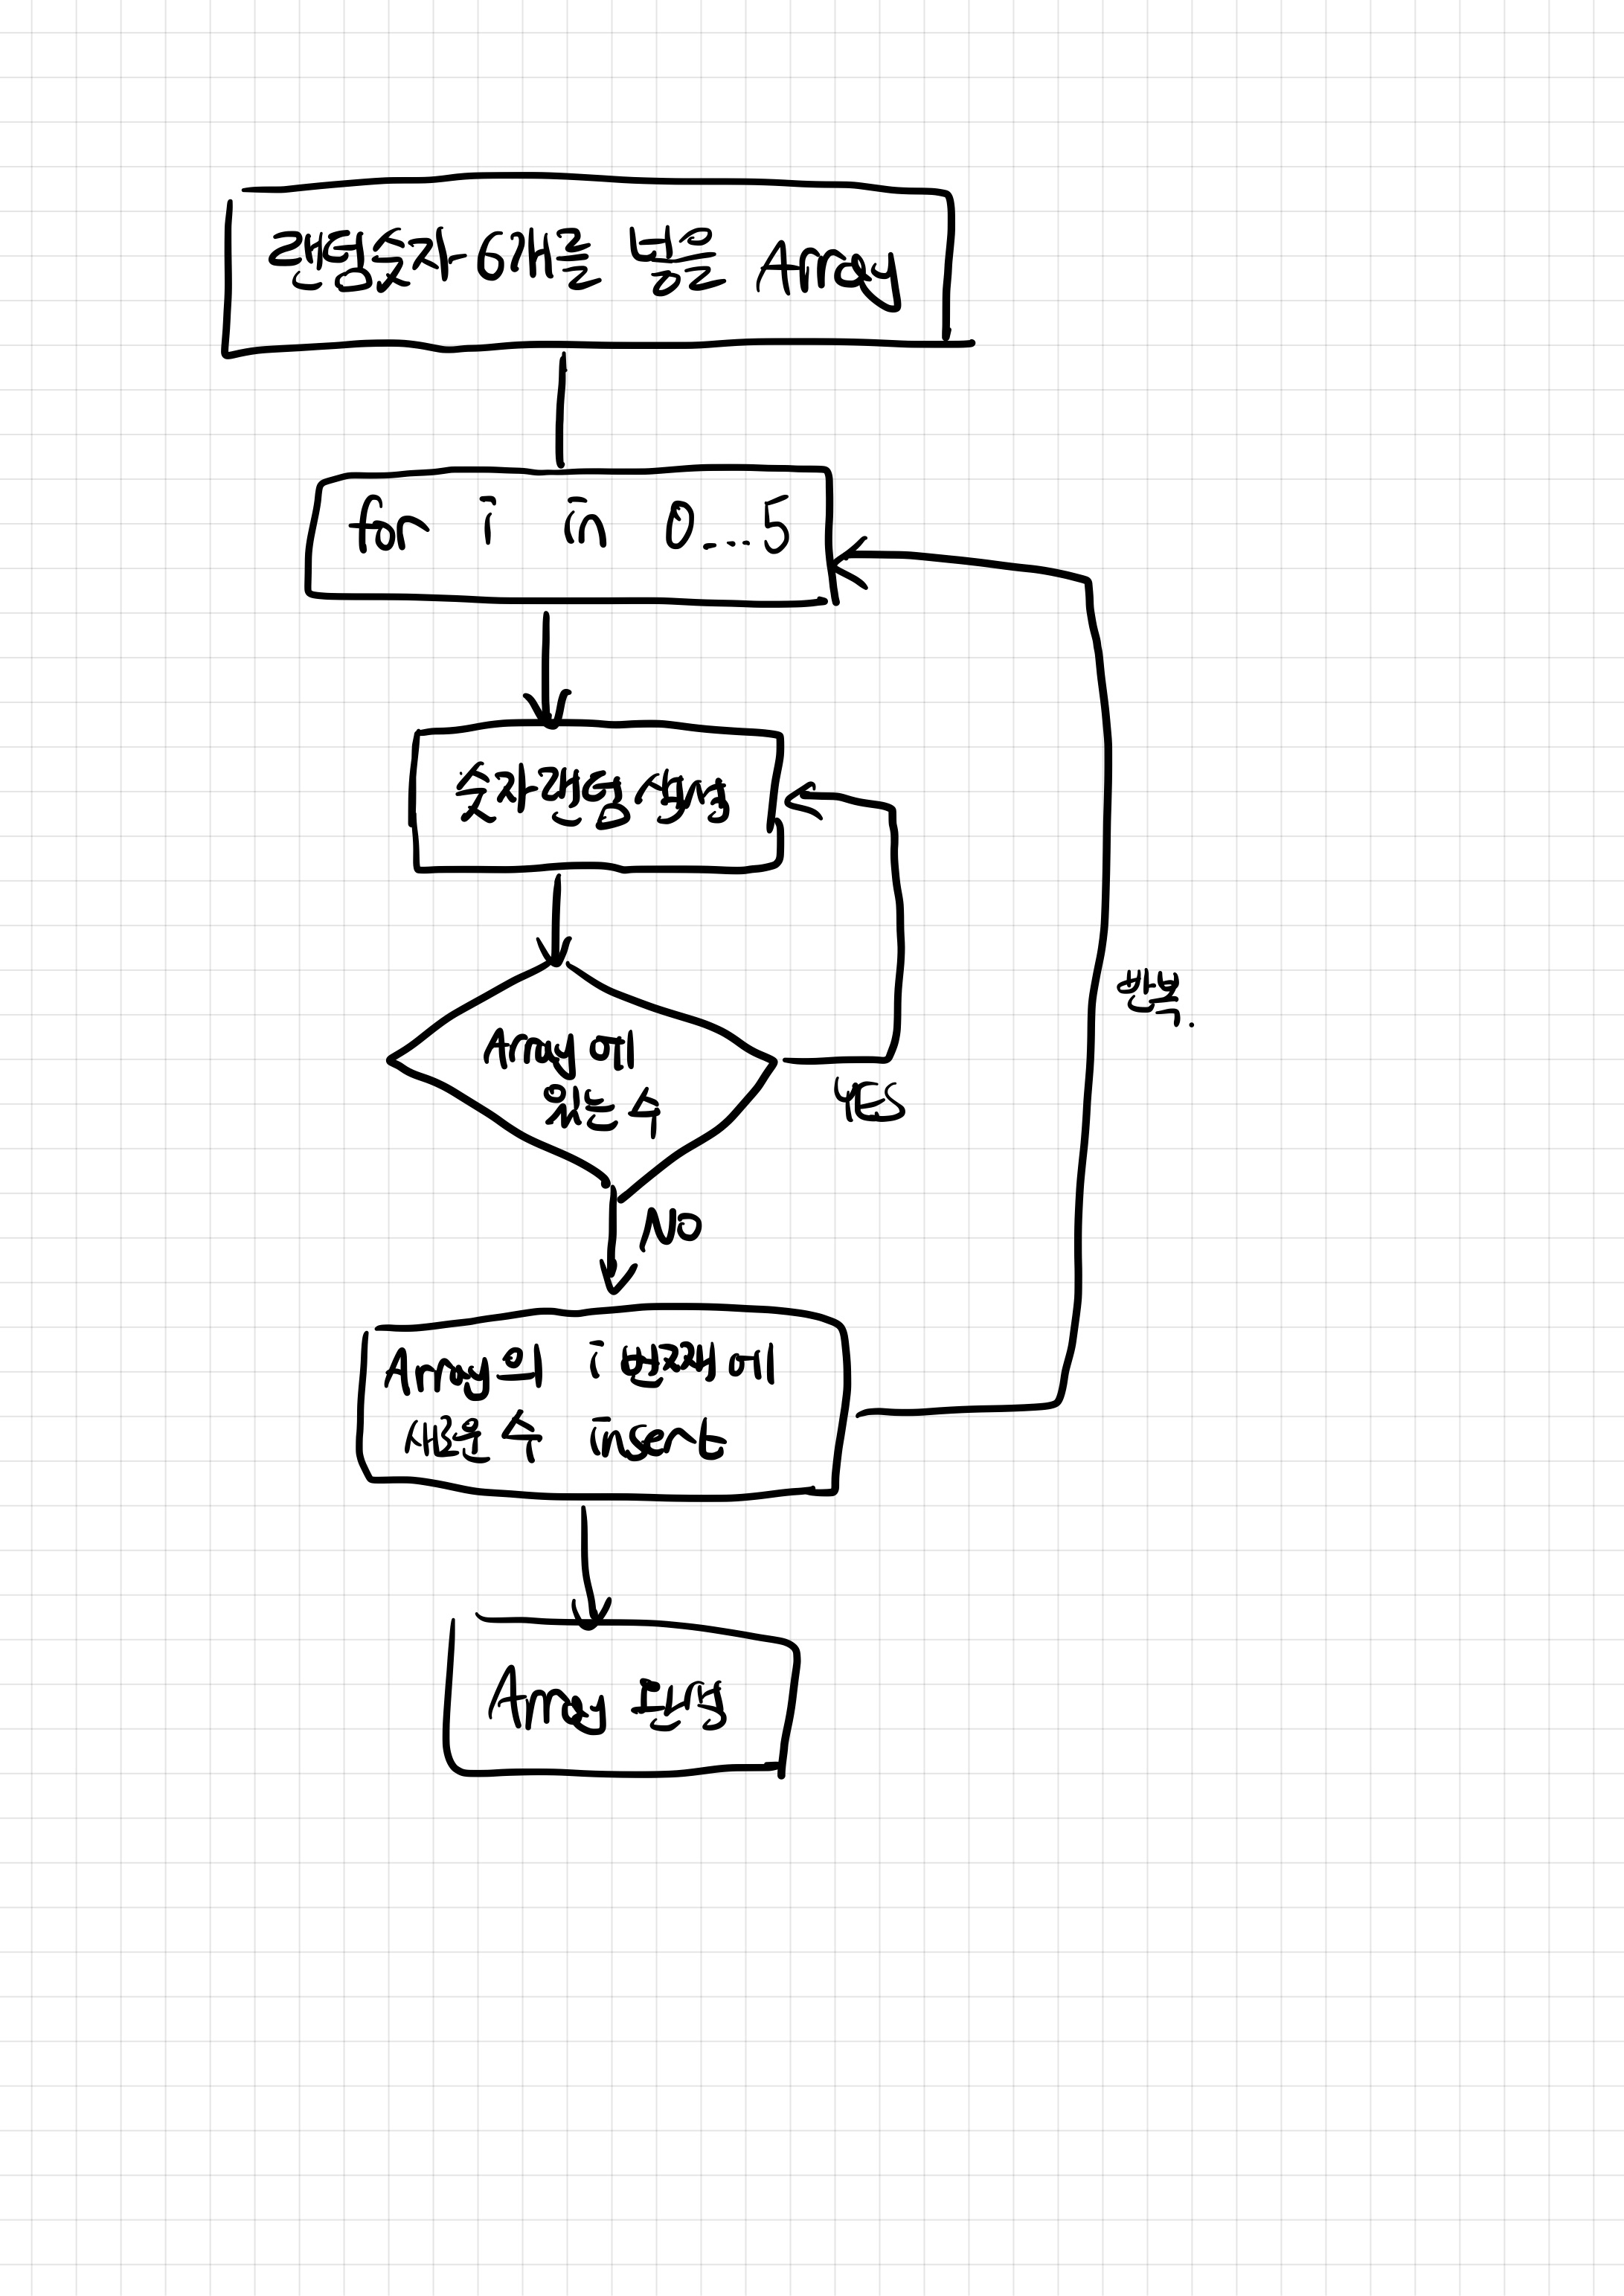 랜덤숫자 6개를 넣을 Array
for i in 0...5
숫자 랜덤 생성
Array 에
있는 수
YES
반복.
NO
Array의 i 번째에
새로운 수 insert
Array 완성